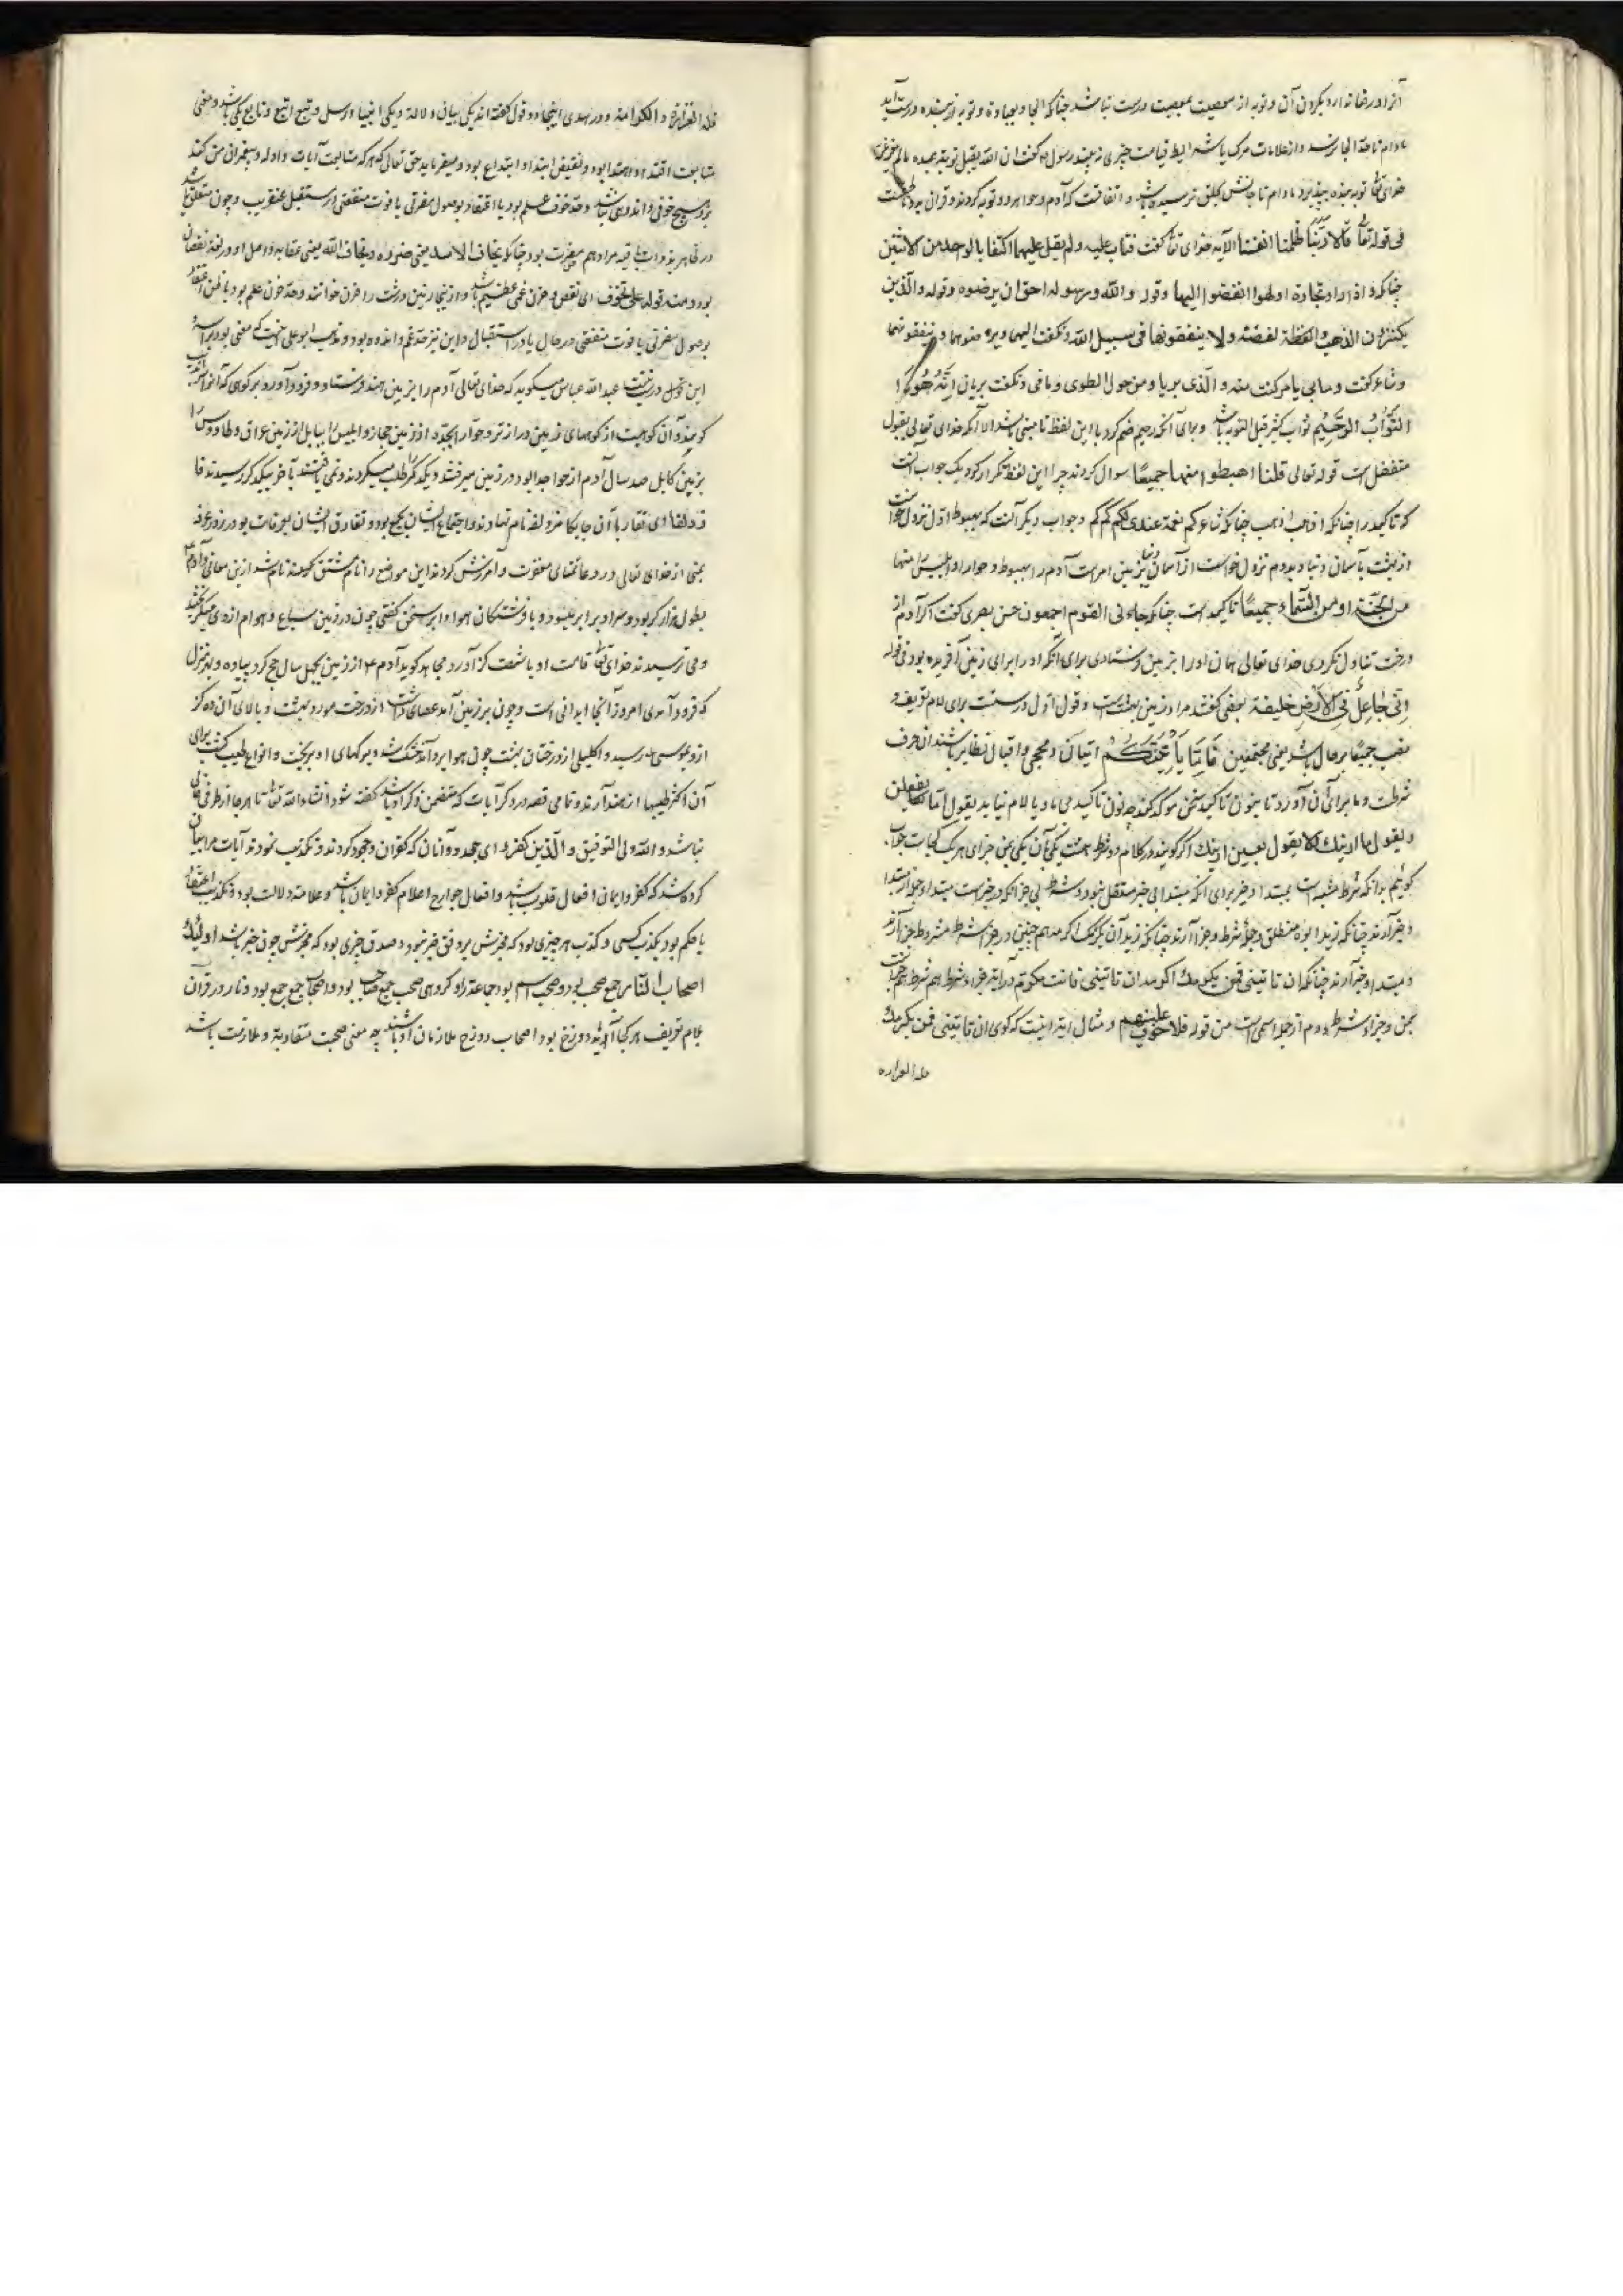 آنرا و رضا ندارد بکردن آن و توبه از معصیت بمعصیت درست نباشد چنانکه الجا و بعبادة و توبه از بنده درست آید
مادام تا حد الجا نرسد و از علامات مرک یا شرایط قیامت چیزی نه بیند و رسول گفت ان الله یقبل توبة عبده ما لم یغرغر
خدای توبه بنده بپذیرد مادام تا جانش بحلق نرسیده باشد و اتفاقست که آدم و حوا هر دو توبه کردند و قران به
فی قوله تعالی قالا ربنا ظلمنا انفسنا الآیه خدای گفت فتاب علیه و لم یقل علیهما اکتفا بالواحد من الاثنین
چنانکه و اذا راوا تجارة او لهوا انفضوا الیها و قوله و الله و رسوله احق ان یرضوه و قوله و الذین
یکنزون الذهب و الفضة و لا ینفقونها فی سبیل الله و نکفت الیهما و یرضوهما و ینفقونهما
و شاعر گفت و مابی یا مرکفت منه و الذی بریا و من حول الطوی و ما فی و نکفت بریان انه هو
التواب الرحیم تواب کثیر قبل التوبه باشد و برای آنکه رحیم ضم کرد با این لفظ تا مبنی باشد الا آنکه خدای تعالی بقبول
متفضل است قوله تعالی قلنا اهبطوا منها جمیعا سوال کردند چرا این لفظ تکرار کرد یک جواب آنست
که تاکید را چنانکه اذهب اذهب چنانکه شاعر کم نعمة عندی لکم کم کم و جواب دیگر آنست که بهبوط اول نزول خواست
از بهشت بآسمان دنیا و بدوم نزول خواست از آسمان دنیا بزمین امرست آدم را بهبوط و حوا را و ابلیس را منها
من الجنة او من السماء جمیعا تاکیدست چنانکه جاءنی القوم اجمعون حسن بصری گفت اگر آدم از
درخت تناول نکردی خدای تعالی همان او را بزمین فرستادی برای آنکه او را برای زمین آفریده بود فی قوله
انی جاعل فی الارض خلیفة بعضی گفتند مراد زمین بهشت است و قول اول درستست برای لام تعریف و
نصب جمیعا بر حال باشد یعنی مجتمعین فاما یاتینکم اتیان و مجی و اقبال نظایر باشند ان حرف
شرطست و ما برای آن آورد تا بنون تاکید سخن موکد کند چه نون تاکید می با و یا لام نیاید یقول اما تفعلن
و یقول ما ارینک لا یقول بعین ارینک اگر گویند در کلام دو شرط هست یکی آن یکی من جزای هر یک کجاست جواب
گوئیم بدانکه شرط مشبه است بمبتدا و خبر برای آنکه مبتدا بی خبر مستقل نبود و شرط بی جزا چنانکه در خبرست مبتدا و جمله از مبتدا
و خبر آرند چنانکه زید ابوه منطلق و جمله شرط و جزا آرند چنانکه زید ان یکرمک اکرمه هم چنین در جزا شرط مشروط جزا آرند
و مبتدا و خبر آرند چنانکه ان تاتینی فمن یکرمک اکرمه ان تاتینی فانت مکرم در آیه جزاء شرط هم شرط
بمن و جزاء شرط دوم از جمله اسمی است من قوله فلا خوف علیهم و مثال آیة اینست که گوی ان تاتینی فمن یکرمک
فله العزازه
فله العزازة و الکرامة و در هدی اینجا دو قول گفته اند یکی بیان و دلالة و یکی انبیا و رسل و تبع اتبع و تابع یکی باشد و معنی
متابعت اقتدا و اهتدا بود و نقیض ابتدا و ابتداع بود و میفرماید حق تعالی که هر که متابعت آیات و ادله و پیغمبران من کند
بر وی هیچ خوفی و اندوهی نباشد و حد خوف علم بود یا اعتقاد بوصول مضرتی یا فوت منفعتی از مستقبل عنقریب و چون متعلق باشد
در ظاهر بذوات باقیه مراد هم مضرت بود چنانکه یخاف الاسد یعنی ضرره و یخاف الله یعنی عقابه و اصل او در لغة نقصان
بود و منه قوله علی تخوف ای تنقص و حزن غمی عظیم باشد و از اینجا زمین درشت را حزن خوانند و حد حزن علم بود یا ظن اعتقاد
بوصول مضرتی یا فوت منفعتی در حال یا در استقبال و این نیز حد غم و اندوه بود و مذهب ابو علی اینست که معنی بود براسه
این قول درستست عبدالله عباس میگوید که خدای تعالی آدم را بزمین هند فرستاد و فرود آورد بر کوهی که آنرا
گویند و آن کوهیست از کوههای زمین دراز تر و حوا را بجده از زمین حجاز و ابلیس را ببابل از زمین عراق و طاووس را
بزمین کابل صد سال آدم از حوا جدا بود در زمین میرفتند و یکدیگر را طلب میکردند و نمی یافتند تا آخر بیکدیگر رسیدند فا
زدلفا ای تقاربا آن جایگاه مزدلفه نام نهادند و اجتماع ایشان بجمع بود و تعارف ایشان بعرفات بود روز عرفه
بمنی از خدای تعالی در دعا تمنای مغفرت و آمرزش کردند این مواضع را نام مشتق کردند نام شد از این معانی و آدم
بطول دراز کردار بود و سر او برابر بسود و با فرشتگان هوا و ابر سخن گفتی چون در زمین سباع و هوام از وی میگریختند
و می ترسیدند خدای قامت او با شصت گز آورد مجاهد گوید آدم از زمین چهل سال حج کرد پیاده و بهر منزل
که فرود آمدی امروز آنجا ابدانی است و چون بر زمین آمد عصای داشت از درخت مورد بهشت و بالای آن ده گز
از و بموسی رسید و اکلیلی از درختان بهشت چون هوا برو آمد خشک شد و برگهای او بریخت و انواع طیب گشت برای
آن اکثر طیبها از هند آرند و تمامی قصه در ذکر آیات که متضمن ذکر آدم باشد گفته شود انشاءالله تعالی تا هر جا از طرفی خالی
نباشد و الله ولی التوفیق و الذین کفروا ای جحدوا و آنان که کفران و جحود کردند و تکذیب نمودند آیات مرا بیان
کرده شد که کفر و ایمان افعال قلوب باشد و افعال جوارح اعلام کفر و ایمان باشد و علامة دلالت بود و تکذیب اعتقاد
یا حکم بود بکذب کسی و کذب هر چیزی بود که مخبرش بر وفق خبر نبود و صدق خبری بود که مخبرش چون خبر باشد اولئک
اصحاب النار جمع صحب بود و صحب اسم بود جماعة را و گروهی صحب جمع صاحب بود و اصحاب جمع جمع بود و نار در قران
بلام تعریف هر کجا آید دوزخ بود اصحاب دوزخ ملازمان او باشند چه معنی صحبت مقاربة و ملازمت باشد